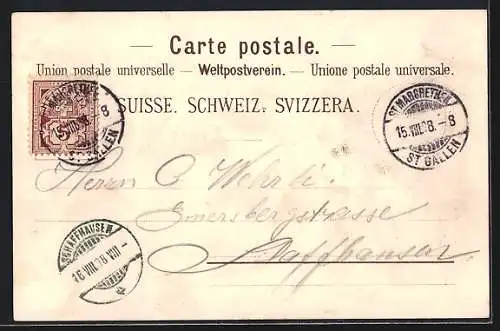 — Carte postale. —
Union postale universelle — Weltpostverein. — Unione postale universale.
SUISSE. SCHWEIZ. SVIZZERA.
ST. MARGRETHEN
15.VIII.98.-8
ST. GALLEN
5
ST. GALLEN
Herrn C. Wehrli.
Emmersbergstrasse
Schaffhausen
SCHAFFHAUSEN